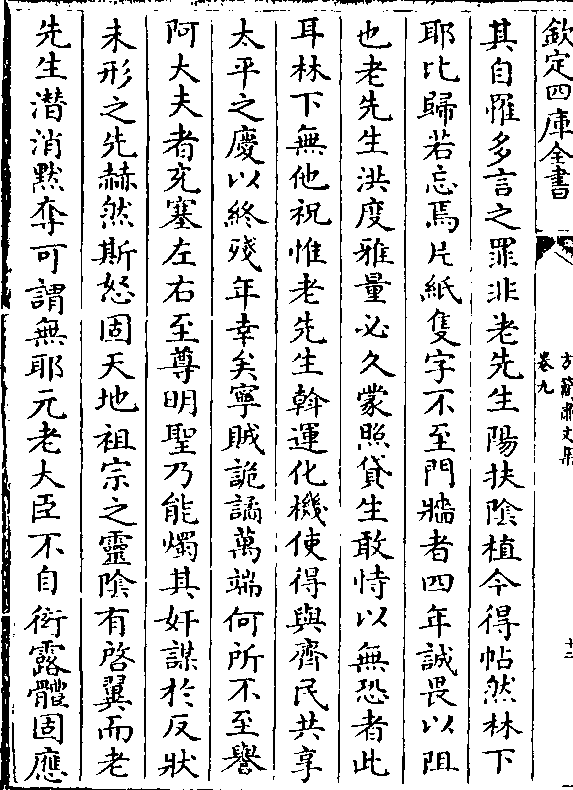 欽定四庫全書
方簡肅文集
卷九
十二
其自罹多言之罪非老先生陽扶陰植今得帖然林下
耶比歸若忘焉片紙隻字不至門牆者四年誠畏以阻
也老先生洪度雅量必久蒙照貸生敢恃以無恐者此
耳林下無他祝惟老先生斡運化機使得與齊民共享
太平之慶以終殘年幸矣寧賊詭譎萬端何所不至譽
阿大夫者充塞左右至尊明聖乃能燭其奸謀於反狀
未形之先赫然斯怒固天地祖宗之靈陰有啓翼而老
先生潛消黙奪可謂無耶元老大臣不自衒露體固應